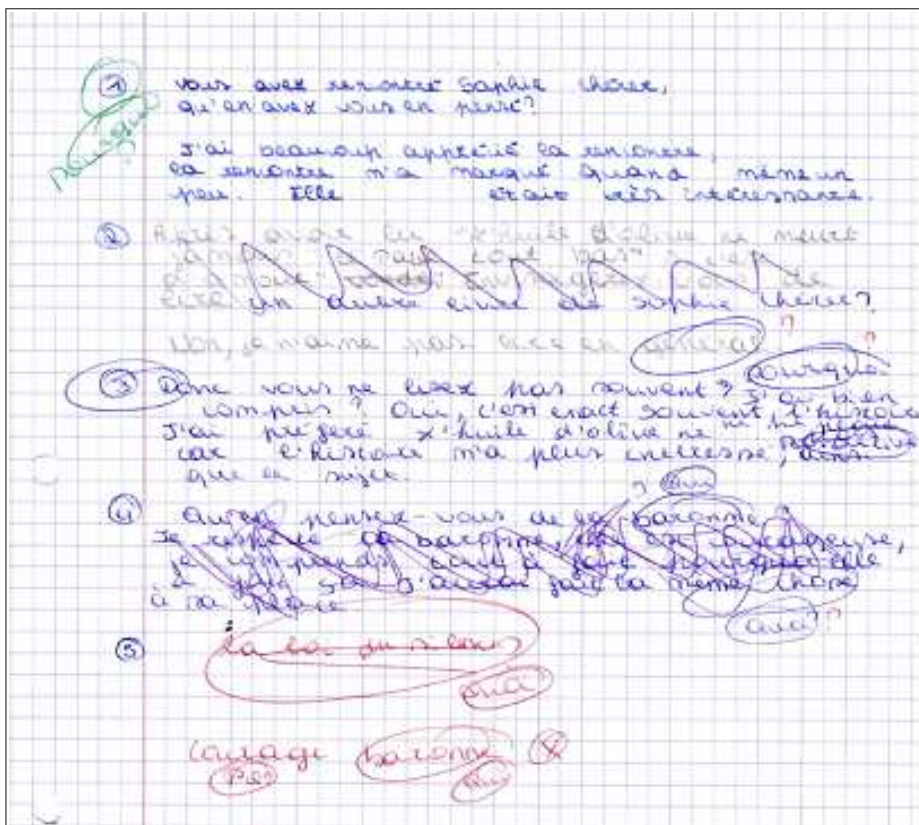 1 Vous avez rencontré Sophie Chérer,
qu'en avez vous en pensé?
pourquoi?
J'ai beaucoup apprécié la rencontre,
la rencontre m'a marqué quand même un
peu. Elle était très intéressante.
2 Après avoir lu "L'huile d'olive ne meurt
jamais"
un autre livre de Sophie Chérer?
Non, je n'aime pas lire en général
pourquoi
3 Donc vous ne lisez pas souvent? J'ai bien
compris? Oui, c'est exact souvent, l'histoire
J'ai préféré L'huile d'olive ne
car l'histoire m'a plus intéressé, ainsi
que le sujet.
4 Qu'en pensez-vous de la baronne?
Je respecte la baronne, elle est courageuse,
je comprends tout à fait pourquoi elle
a fait ça j'aurai fait la même chose
à sa place
5 La loi du silence
courage baronne